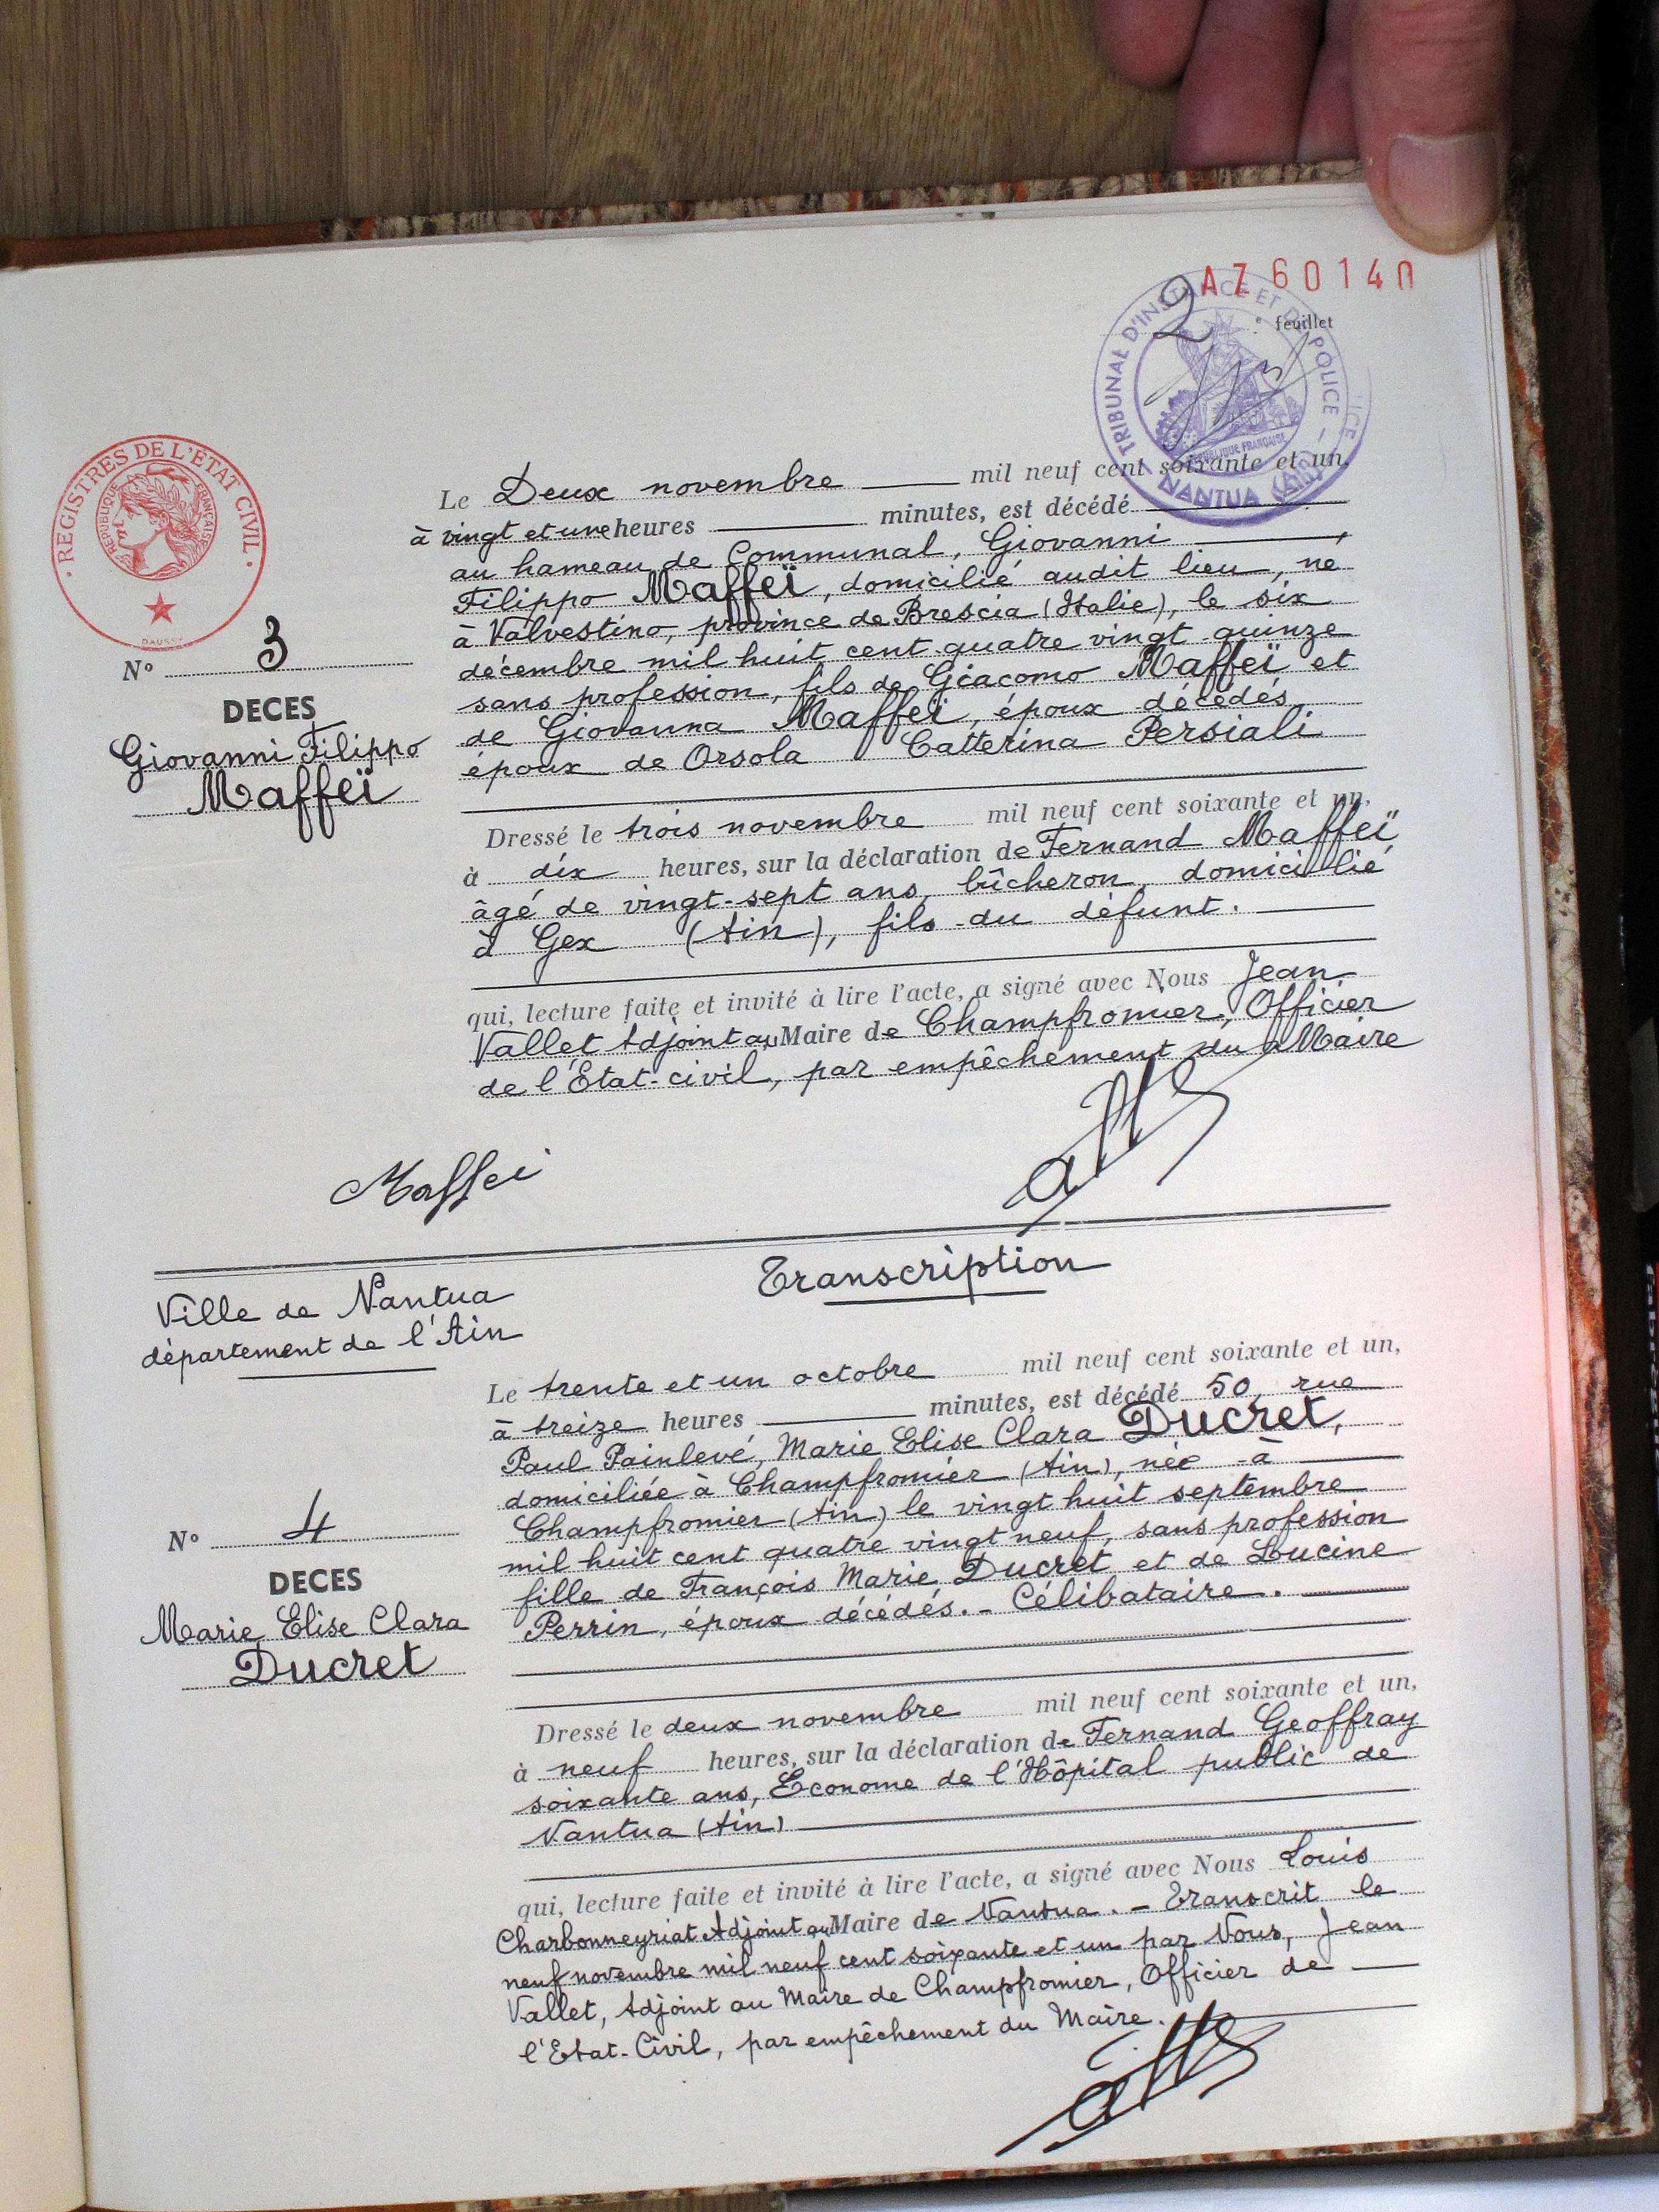 AZ 60140
2 e feuillet
TRIBUNAL D'INSTANCE ET DE POLICE
RÉPUBLIQUE FRANÇAISE
NANTUA (AIN)
REGISTRES DE L'ETAT CIVIL
REPUBLIQUE FRANÇAISE
DAUSSY
N° 3
DECES
Giovanni Filippo
Maffeï
Le Deux novembre mil neuf cent soixante et un,
à vingt et une heures minutes, est décédé
au hameau de Communal, Giovanni
Filippo Maffeï, domicilié audit lieu, né
à Valvestino, province de Brescia (Italie), le six
décembre mil huit cent quatre vingt quinze
sans profession, fils de Giacomo Maffeï et
de Giovanna Maffeï, époux décédés
époux de Orsola Catterina Persiali
Dressé le trois novembre mil neuf cent soixante et un,
à dix heures, sur la déclaration de Fernand Maffeï
âgé de vingt-sept ans, bûcheron, domicilié
à Gex (Ain), fils du défunt.
qui, lecture faite et invité à lire l'acte, a signé avec Nous Jean
Vallet Adjoint au Maire de Champfromier, Officier
de l'Etat-civil, par empêchement du Maire
Maffei
Ville de Nantua
département de l'Ain
Transcription
N° 4
DECES
Marie Elise Clara
Ducret
Le trente et un octobre mil neuf cent soixante et un,
à treize heures minutes, est décédé 50, rue
Paul Painlevé, Marie Elise Clara Ducret,
domiciliée à Champfromier (Ain), née à
Champfromier (Ain) le vingt huit septembre
mil huit cent quatre vingt neuf, sans profession
fille de François Marie Ducret et de Loucine
Perrin, époux décédés. - Célibataire.
Dressé le deux novembre mil neuf cent soixante et un,
à neuf heures, sur la déclaration de Fernand Geoffray
soixante ans, Econome de l'Hôpital public de
Nantua (Ain)
qui, lecture faite et invité à lire l'acte, a signé avec Nous Louis
Charbonneyriat Adjoint au Maire de Nantua. - Transcrit le
neuf novembre mil neuf cent soixante et un par Nous, Jean
Vallet, Adjoint au Maire de Champfromier, Officier de
l'Etat-Civil, par empêchement du Maire.